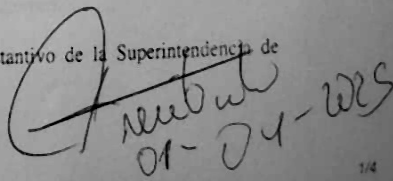 tantivo de la Superintendencia de
01-04-2025
1/4